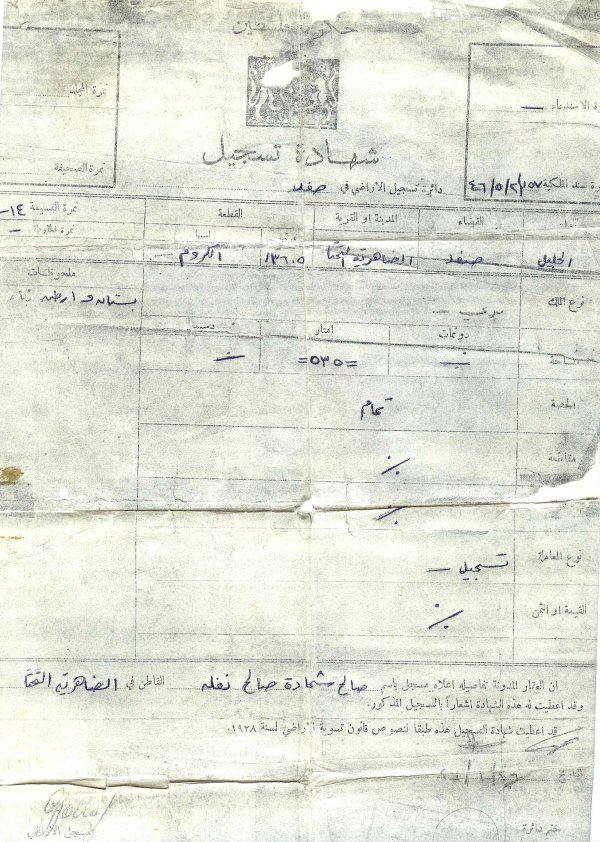 حكومة فلسطين
نمرة المجلد
نمرة الاستدعاء —
شهادة تسجيل
نمرة الصحيفة
دائرة تسجيل الاراضي في صفد
نمرة سند الملكية
القضاء المدينة او القرية القطعة نمرة القسيمة ١٤
اسمها
الجليل صفد الضاهرية التحتا ١٣٦٠٥ الكروم
ملحوظات
نوع الملك
بستان و ارض بناء
دونمات امتار
مساحة =٥٣٥=
الحصة تمام
مقاطعة
نوع المعاملة تسجيل —
القيمة او الثمن
ان العقار المدونة تفاصيله اعلاه مسجل باسم صالح شحادة صالح نفله القاطن في الضاهرية التحتا
وقد اعطيت له هذه الشهادة اشعاراً بالتسجيل المذكور.
قد اعطيت شهادة التسجيل هذه طبقا لنصوص قانون تسوية الاراضي لسنة ١٩٢٨.
التاريخ
مسجل الاراضي
ختم دائرة